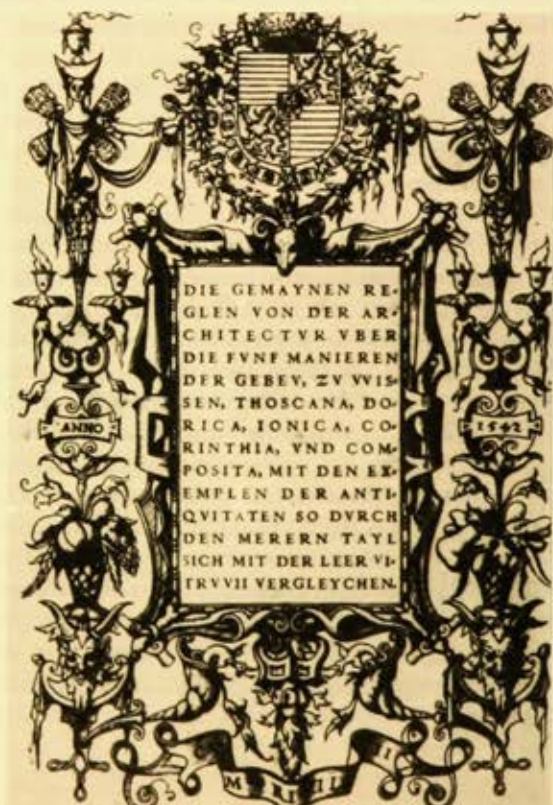 DIE GEMAYNEN RE-
GLEN VON DER AR-
CHITECTVR VBER
DIE FVNF MANIEREN
DER GEBEV, ZV VVIS-
SEN, THOSCANA, DO-
RICA, IONICA, CO-
RINTHIA, VND COM-
POSITA, MIT DEN EX-
EMPLEN DER ANTI-
QVITATEN SO DVRCH
DEN MERERN TAYL
SICH MIT DER LEER VI-
TRVVII VERGLEYCHEN.
ANNO
1542